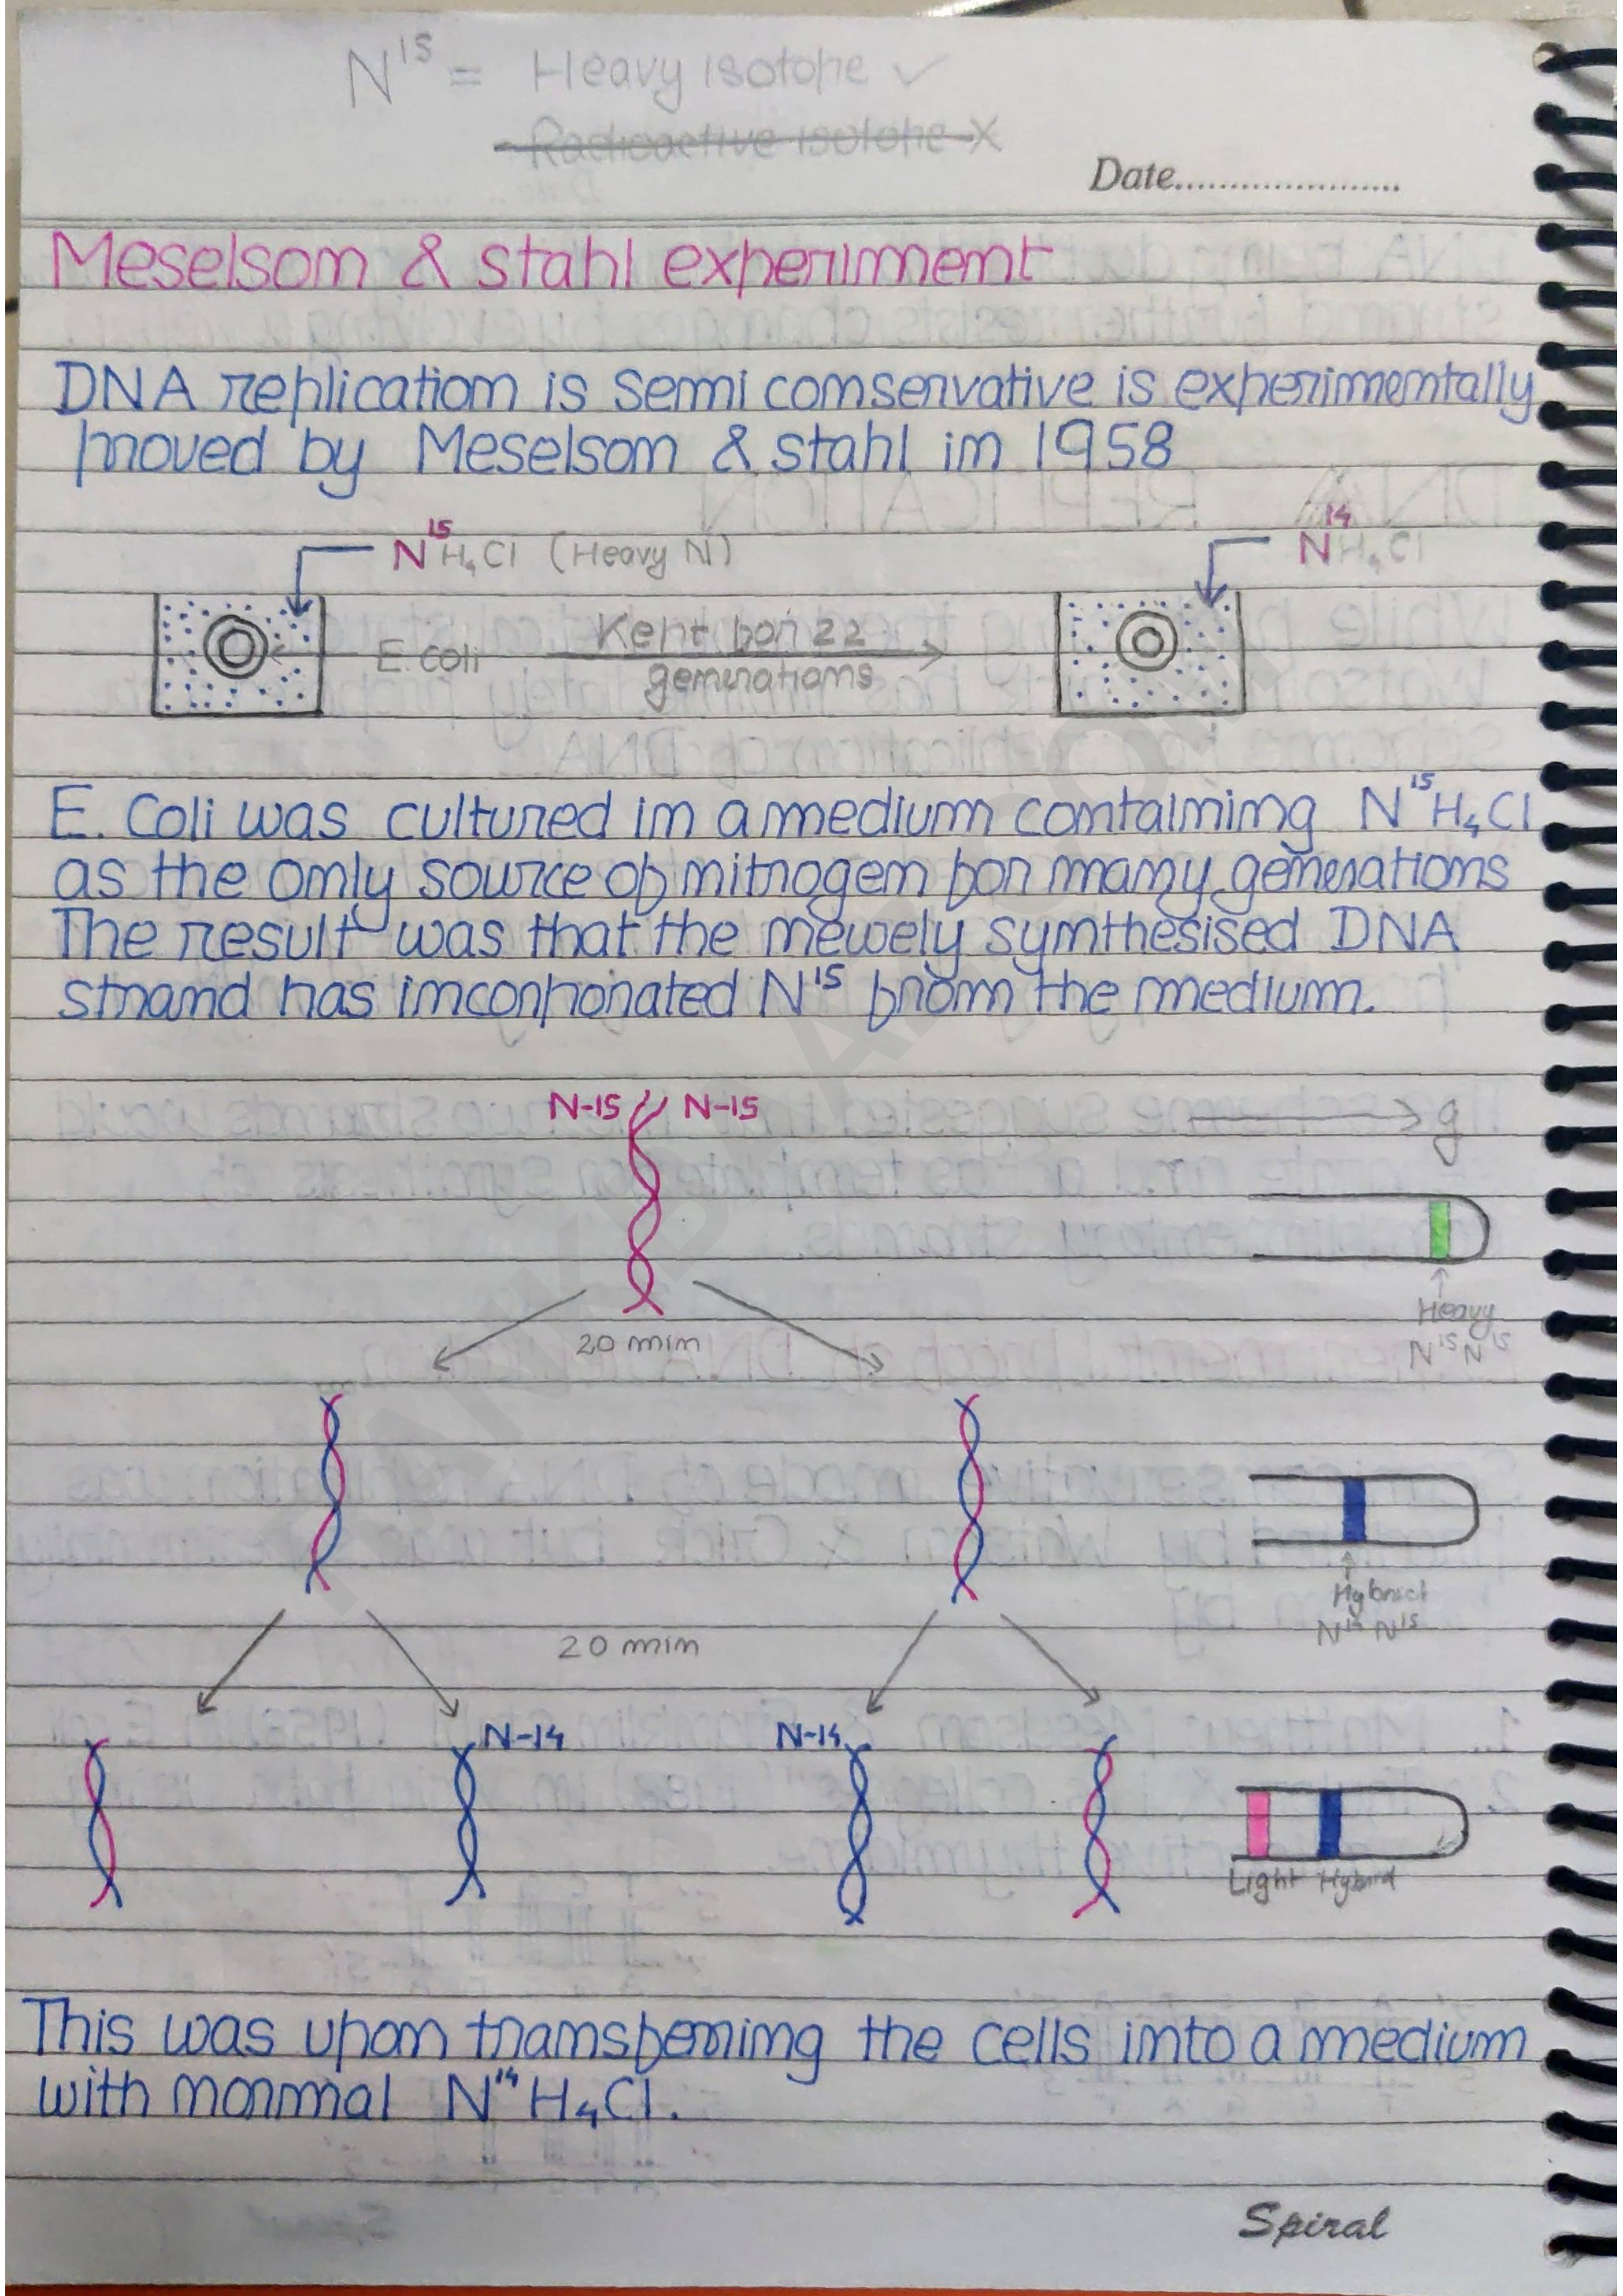 N¹⁵ = Heavy isotope ✓
Radioactive isotope X
Date......................
Meselson & stahl experiment
DNA replication is semi conservative is experimentally
proved by Meselson & stahl in 1958
N¹⁵H₄Cl (Heavy N)
N¹⁴H₄Cl
E. coli
Kept for 22
generations
E. Coli was cultured in a medium containing N¹⁵H₄Cl
as the only source of nitrogen for many generations
The result was that the newely synthesised DNA
strand has incorporated N¹⁵ from the medium.
N-15 N-15
g
Heavy
N¹⁵N¹⁵
20 min
Hybrid
N¹⁴ N¹⁵
20 min
N-14 N-14
Light Hybrid
This was upon transferring the cells into a medium
with normal N¹⁴H₄Cl.
Spiral